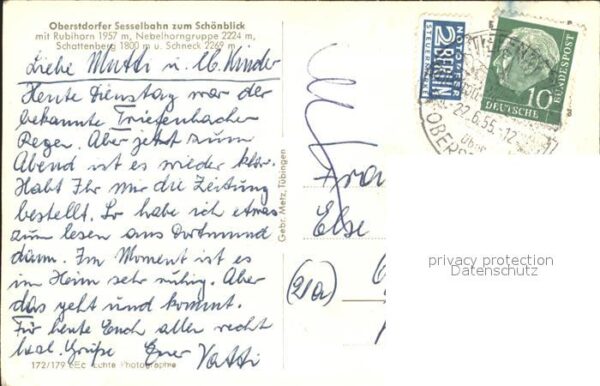 Oberstdorfer Sesselbahn zum Schönblick
mit Rubihorn 1957 m, Nebelhorngruppe 2224 m,
Schattenberg 1800 m u. Schneck 2269 m
Liebe Mutti u. lb. Kinder
Heute Dienstag war der
bekannte Tiefenbacher
Regen. Aber jetzt zum
Abend ist es wieder klar.
Habt Ihr mir die Zeitung
bestellt. So habe ich etwas
zum lesen aus Dortmund
dann. Im Moment ist es
im Heim sehr ruhig. Aber
das geht und kommt.
Für heute Euch allen recht
herzl. Grüße Euer Vatti
172/179 Echte Photographie
Gebr. Metz, Tübingen
NOTOPFER
2 BERLIN
STEUERMARKE
10
DEUTSCHE
BUNDESPOST
22.6.55.-12
Frau
Else
(21a)
privacy protection
Datenschutz